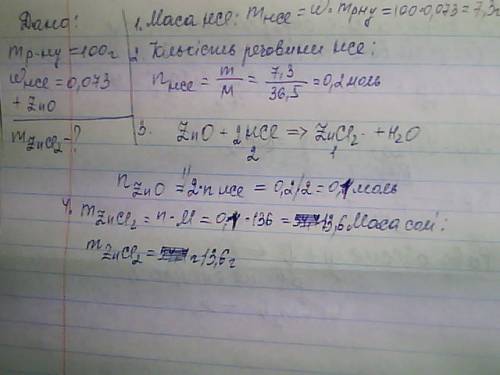 Дано:
mр-ну = 100г
wHCl = 0,073
+ ZnO
mZnCl2 - ?
1. Маса HCl: mHCl = w · mр-ну = 100 · 0,073 = 7,3г
2. Кількість речовини HCl:
nHCl = m/M = 7,3/36,5 = 0,2 моль
3. ZnO + 2HCl => ZnCl2 + H2O
2 1
nZnO = 2 · n HCl = 0,2/2 = 0,1 моль
4. mZnCl2 = n · M = 0,1 · 136 = 13,6 Маса солі:
mZnCl2 = г 13,6 г